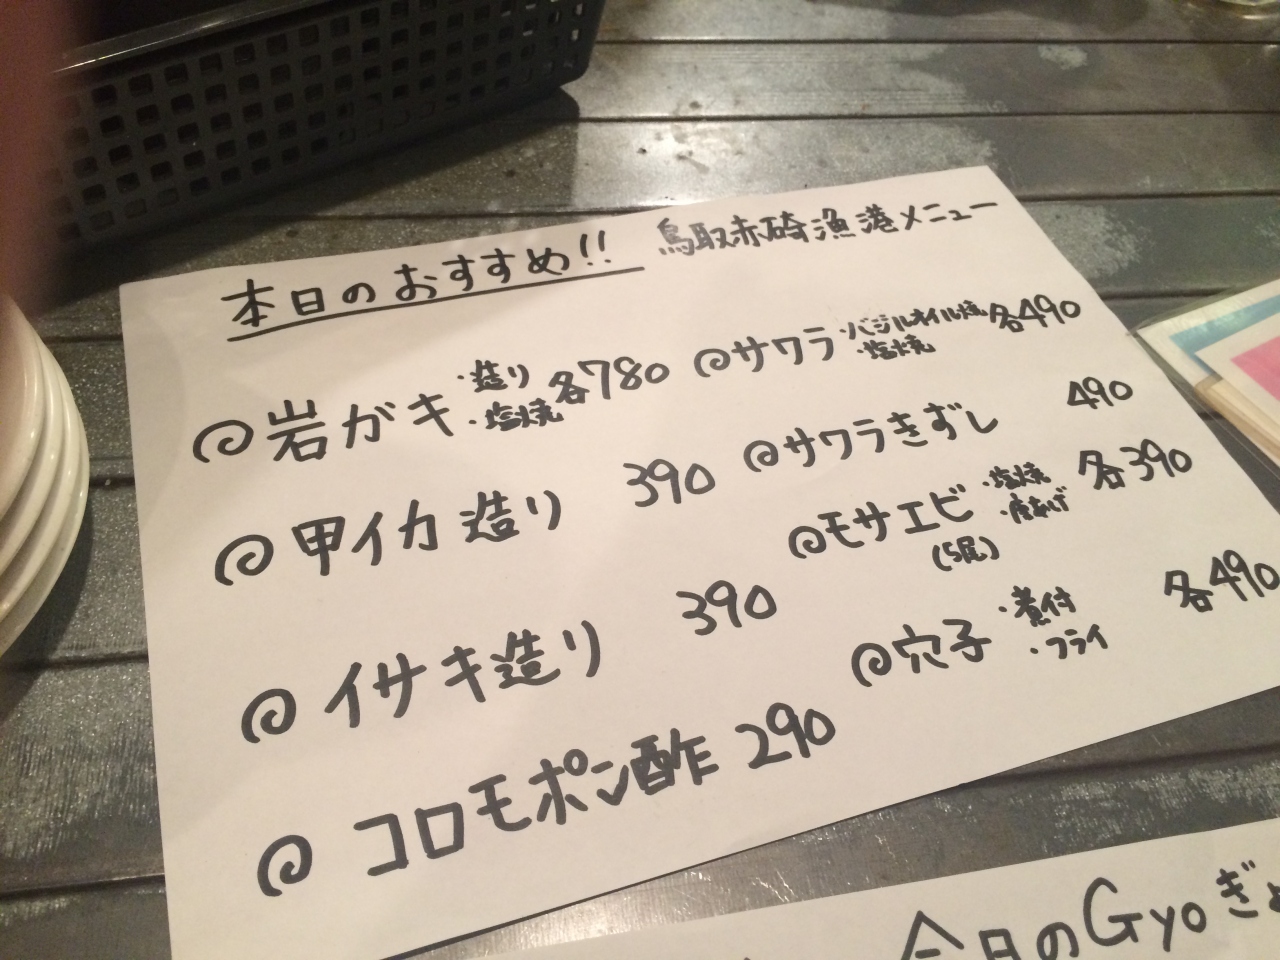 本日のおすすめ!! 鳥取赤碕漁港メニュー
岩ガキ ・造り ・塩焼 各780
甲イカ造り 390
イサキ造り 390
コロモポン酢 290
サワラ ・バジルオイル焼 ・塩焼 各490
サワラきずし 490
モサエビ (5尾) ・塩焼 ・唐あげ 各390
穴子 ・煮付 ・フライ 各490
今日のGyoぎょ